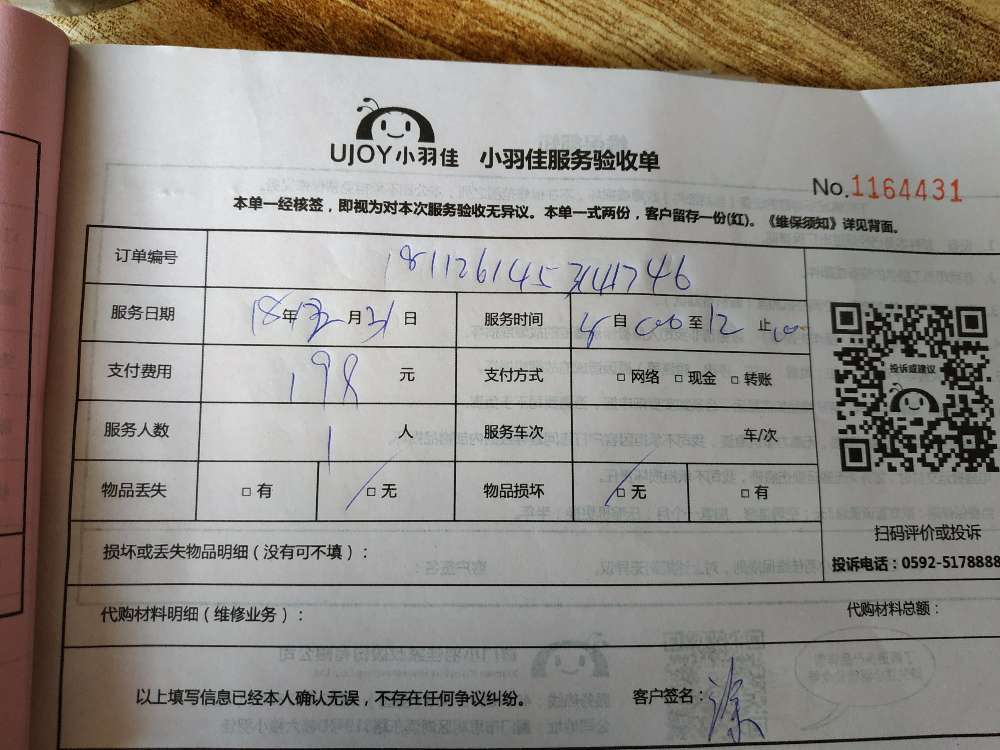 UJOY小羽佳 小羽佳服务验收单
No.1164431
本单一经核签，即视为对本次服务验收无异议。本单一式两份，客户留存一份(红)。《维保须知》详见背面。
订单编号
服务日期 18年 月31日 服务时间 自 至12止
支付费用 198元 支付方式 □ 网络 □ 现金 □ 转账
服务人数 1人 服务车次 车/次
物品丢失 □ 有 □ 无 物品损坏 □ 无 □ 有
投诉或建议
扫码评价或投诉
投诉电话：0592-5178888
损坏或丢失物品明细（没有可不填）：
代购材料明细（维修业务）： 代购材料总额：
以上填写信息已经本人确认无误，不存在任何争议纠纷。 客户签名：涂